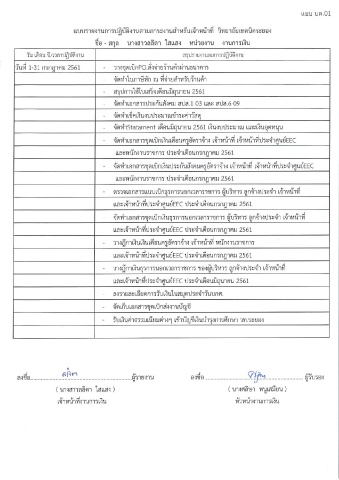 แบบ บค.01
แบบรายงานการปฏิบัติงานตามภาระงานสำหรับเจ้าหน้าที่ วิทยาลัยเทคนิคระยอง
ชื่อ - สกุล นางสาวลลิตา ใสแสง หน่วยงาน งานการเงิน
วัน เดือน ปี/เวลาปฏิบัติงาน สรุปรายงานผลการปฏิบัติงาน
วันที่ 1-31 กรกฎาคม 2561 - วางชุดเบิกPO,สั่งจ่ายร้านค้าผ่านธนาคาร
จัดทำใบภาษีหัก ณ ที่จ่ายสำหรับร้านค้า
- สรุปการใช้ใบเสร็จเดือนมิถุนายน 2561
- จัดทำเอกสารประกันสังคม สปส.1-03 และ สปส.6-09
- จัดทำเช็คเงินงบประมาณชำระค่าวัสดุ
- จัดทำStatament เดือนมิถุนายน 2561 เงินงบประมาณ และเงินอุดหนุน
- จัดทำเอกสารชุดเบิกเงินเดือนครูอัตราจ้าง เจ้าหน้าที่ เจ้าหน้าที่ประจำศูนย์EEC
และพนักงานราชการ ประจำเดือนกรกฎาคม 2561
- จัดทำเอกสารชุดเบิกเงินประกันสังคมครูอัตราจ้าง เจ้าหน้าที่ เจ้าหน้าที่ประจำศูนย์EEC
และพนักงานราชการ ประจำเดือนกรกฎาคม 2561
- ตรวจเอกสารแบบเบิกธุรการนอกเวลาราชการ ผู้บริหาร ลูกจ้างประจำ เจ้าหน้าที่
และเจ้าหน้าที่ประจำศูนย์EEC ประจำเดือนกรกฎาคม 2561
จัดทำเอกสารชุดเบิกเงินธุรการนอกเวลาราชการ ผู้บริหาร ลูกจ้างประจำ เจ้าหน้าที่
และเจ้าหน้าที่ประจำศูนย์EEC ประจำเดือนกรกฎาคม 2561
- วางฎีกาเงินเดือนครูอัตราจ้าง เจ้าหน้าที่ พนักงานราชการ
และเจ้าหน้าที่ประจำศูนย์EEC ประจำเดือนกรกฎาคม 2561
- วางฎีกาเงินธุรการนอกเวลาราชการ ของผู้บริหาร ลูกจ้างประจำ เจ้าหน้าที่
และเจ้าหน้าที่ประจำศูนย์EEC ประจำเดือนมิถุนายน 2561
ลงรายละเอียดการรับเงินในสมุดประจำวันบกศ.
- จัดเก็บเอกสารชุดเบิกส่งงานบัญชี
- รับเงินค่าธรรมเนียมต่างๆ เข้าบัญชีเงินบำรุงการศึกษา วท.ระยอง
ลงชื่อ ลลิตา ผู้รายงาน ลงชื่อ ผู้รับรอง
( นางสาวลลิตา ใสแสง )
เจ้าหน้าที่งานการเงิน หัวหน้างานการเงิน